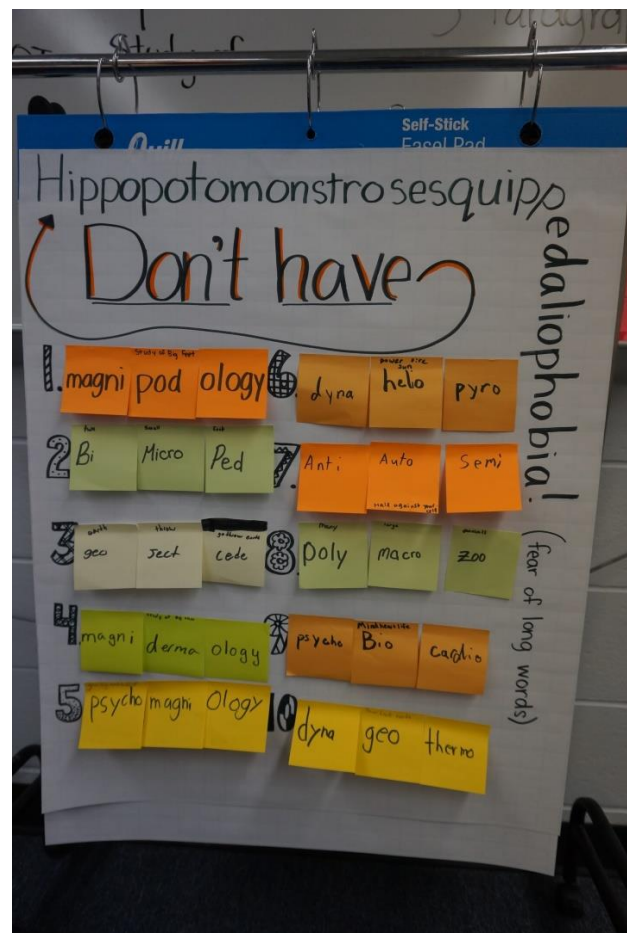 Paragra
Study of
Quill
Self-Stick
Easel Pad
Hippopotomonstrosesquippedaliophobia!
Don't have
(fear of long words)
1. magni pod ology
study of big feet
2 Bi Micro Ped
3 geo ject cede
earth throw
4. magni derma ology
5 psycho magni Ology
6 dyna helio pyro
power fire
sun
7. Anti Auto Semi
8. poly macro zoo
many large animals
9 psycho Bio cardio
10 dyna geo thermo